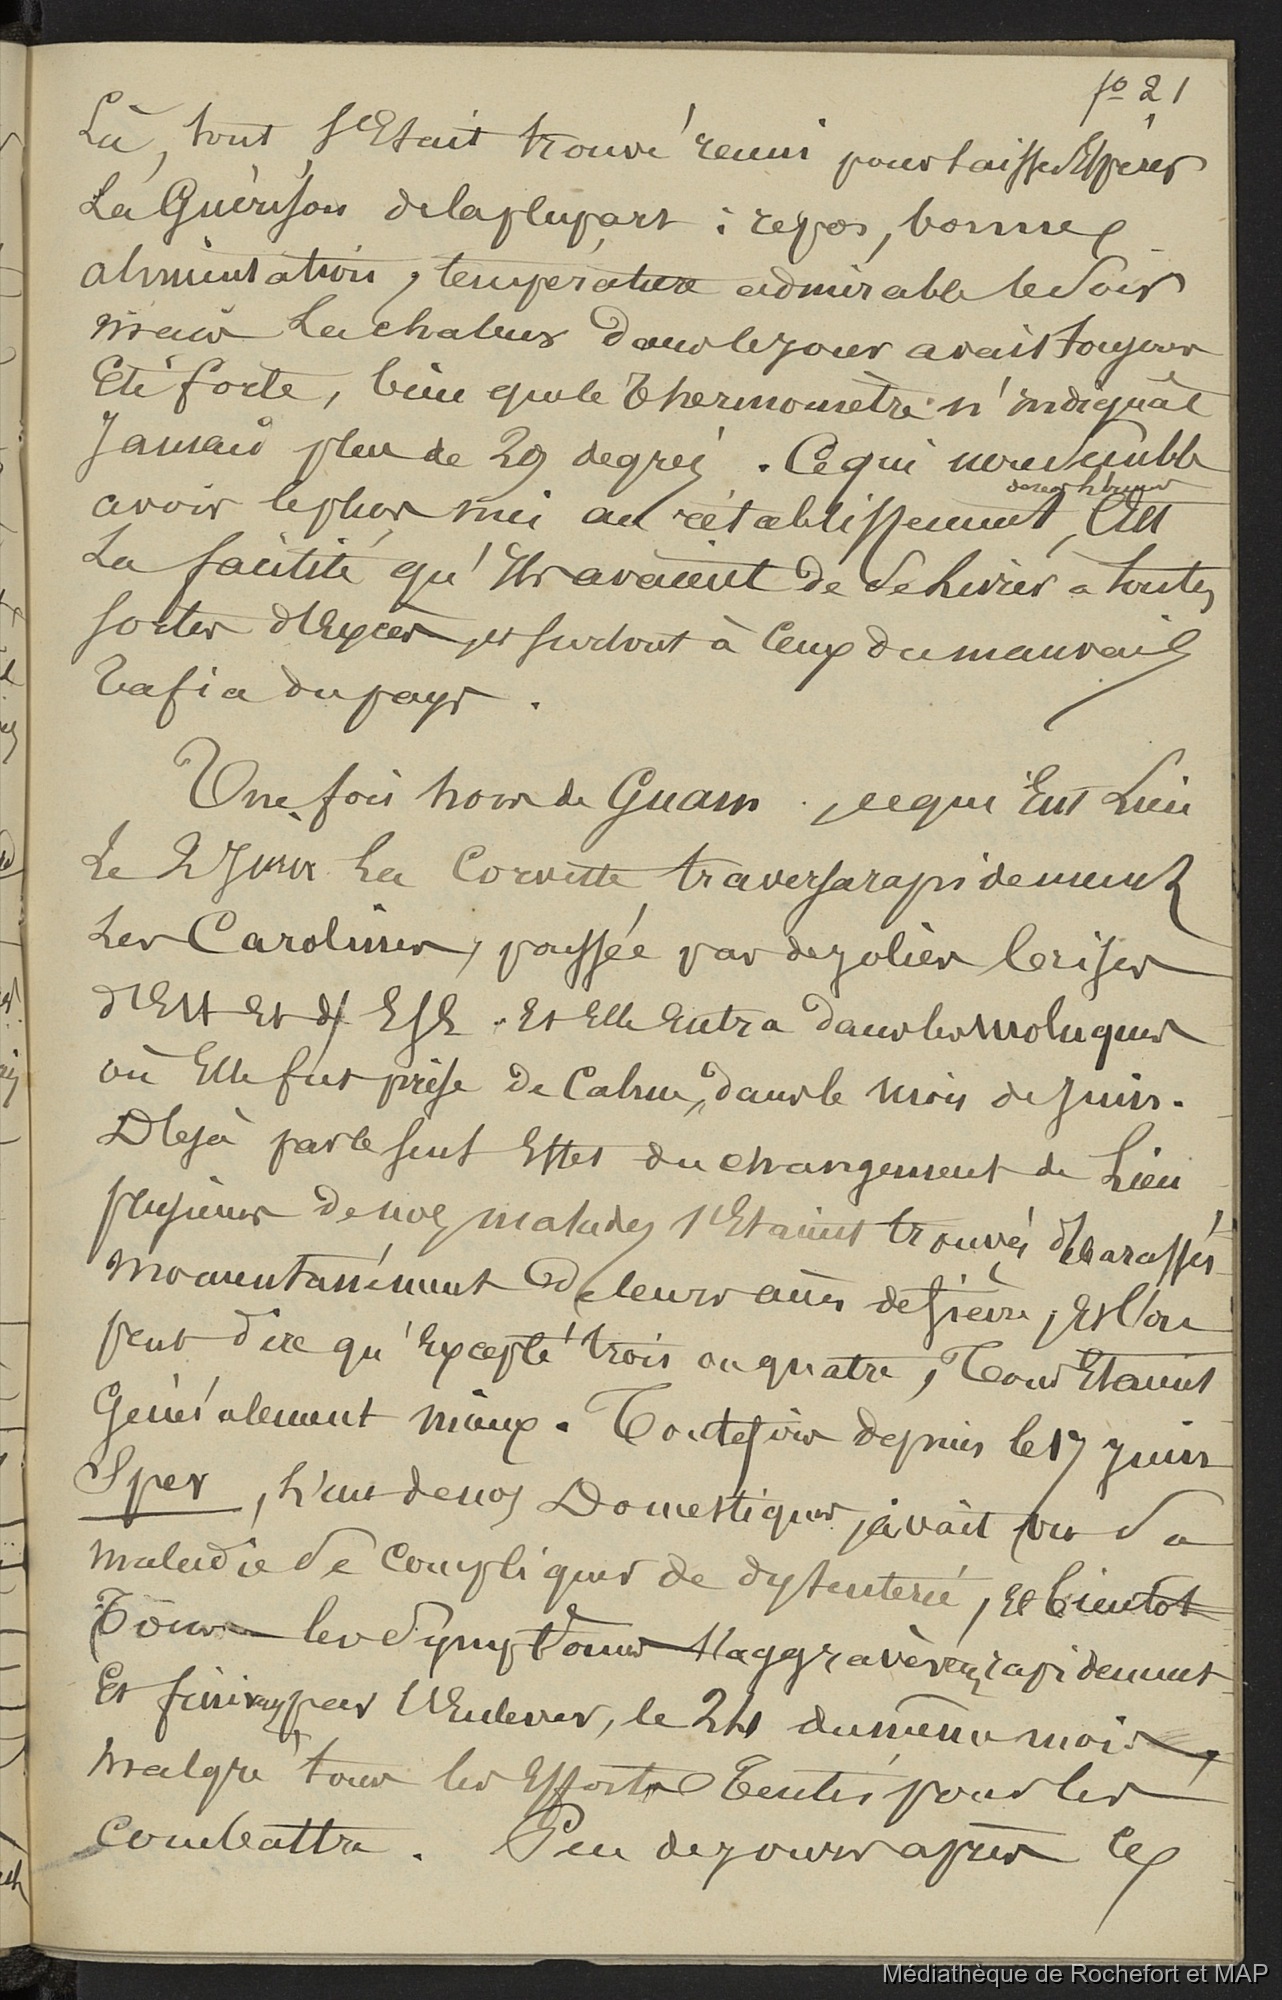 fo 21
Là, tout s'Était trouvé réuni pour laisser Espérer
La Guérison de la plupart : repos, bonne
alimentation, température admirable le Soir
mais La chaleur dans le jour avait toujours
Été forte, bien que le Thermomètre n'indiquât
Jamais plus de 29 degrés. Ce qui nous Semble
de nos h
avoir le plus nui au rétablissement, C'Est
La facilité qu'Ils avaient de Se livrer a toutes
sortes d'Excès, et surtout à Ceux du mauvais
Tafia du pays.
Une fois hors de Guam, ce qui Eut Lieu
Le 2 Juin La Corvette traversa rapidement
Les Carolines, poussée par de jolies brises
d'Est Et d' ESE. Et Elle Entra dans les moluques
où Elle fut prise de Calme, dans le mois de Juin.
Déjà par le seul Effet du changement de Lieu
plusieurs de nos malades s'Étaient trouvés débarassés
momentanément de leurs accès de fièvre, Et l'on
peut dire qu'Excepté trois ou quatre, Tous Étaient
Généralement mieux. Toutefois depuis le 17 Juin
Sper, L'un de nos Domestiques, avait vu Sa
maladie Se compliquer de dyssenterie, Et bientôt
Tous les Symptômes s'aggravèrent rapidement
Et finirent par l'Enlever, le 24 du même mois,
malgré tous les Efforts Tentés pour les
Combattre. Peu de jours après Ce
Médiathèque de Rochefort et MAP